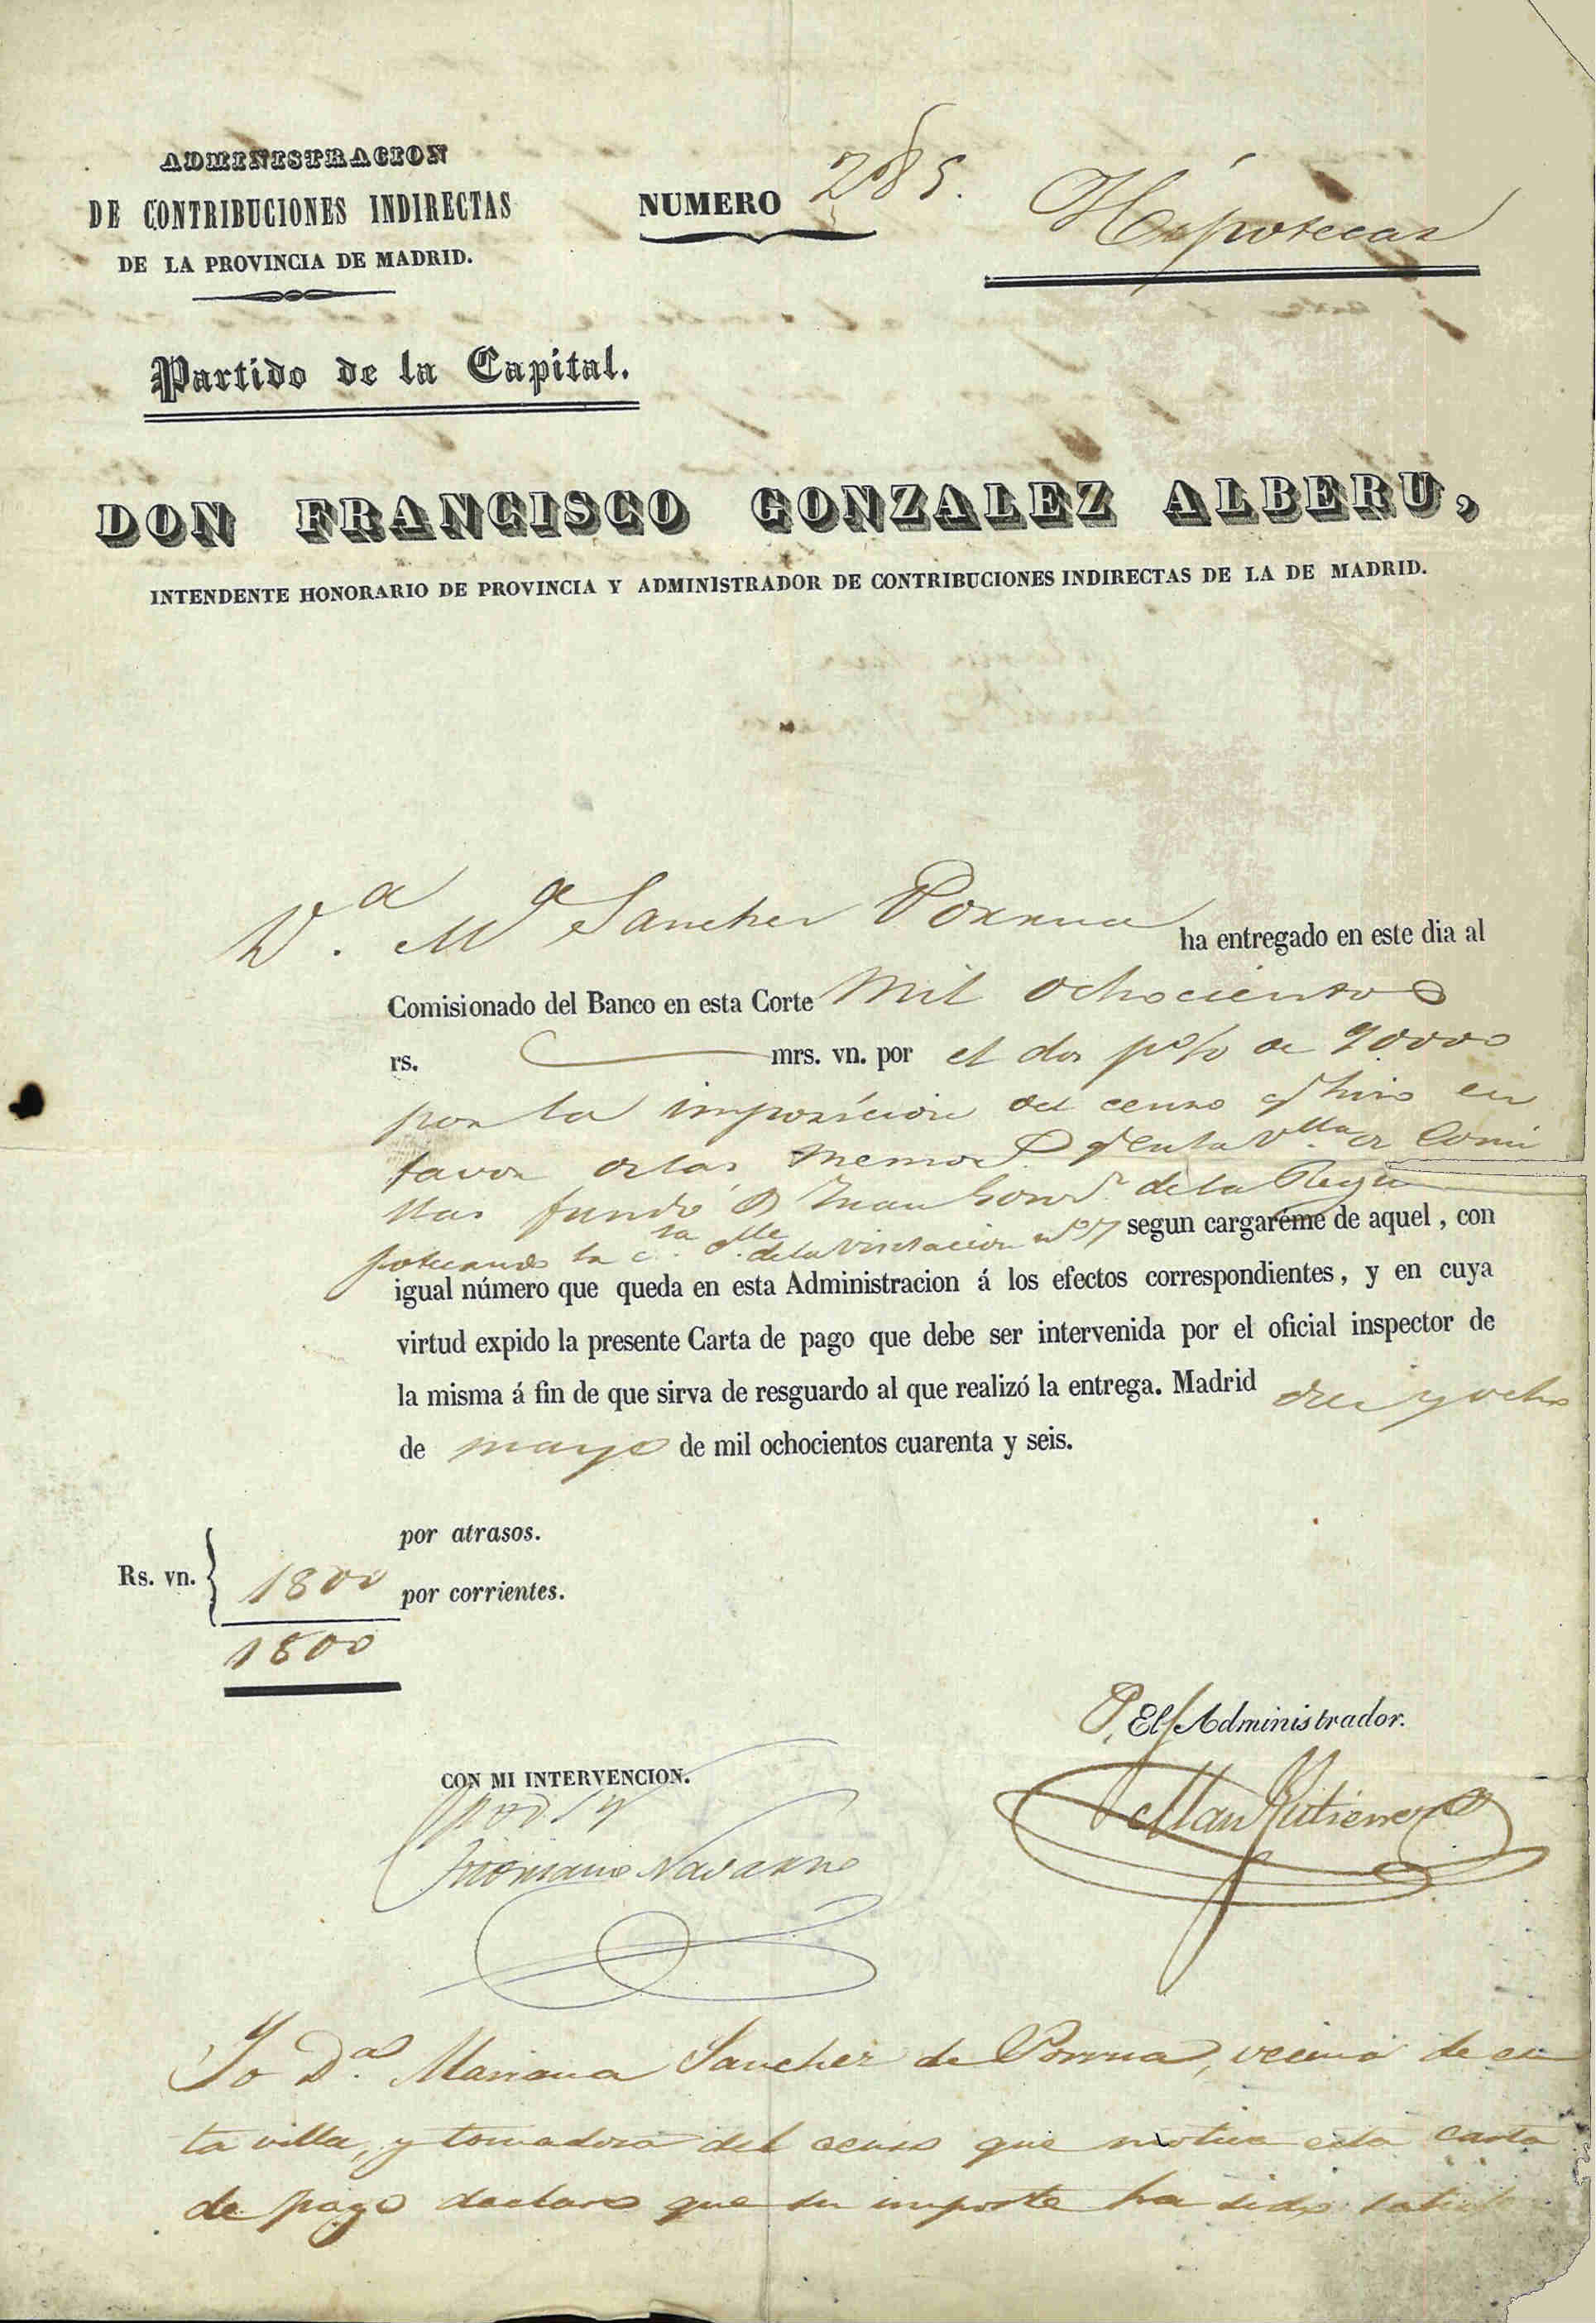 ADMINISTRACION
DE CONTRIBUCIONES INDIRECTAS
DE LA PROVINCIA DE MADRID.
NUMERO 285.
Hipotecas
Partido de la Capital.
DON FRANCISCO GONZALEZ ALBERU,
INTENDENTE HONORARIO DE PROVINCIA Y ADMINISTRADOR DE CONTRIBUCIONES INDIRECTAS DE LA DE MADRID.
D.ª M.ª Sanchez Porrua ha entregado en este dia al
Comisionado del Banco en esta Corte Mil ochocientos
rs. mrs. vn. por el dos p% de 90000
por la imposicion del censo q hizo en
favor de las Memor.s q en la V.lla de Comi
llas fundó D Juan de la Regu
potecando la c.sa c.lle de la Visitacion nº 7 segun cargaréme de aquel, con
igual número que queda en esta Administracion á los efectos correspondientes, y en cuya
virtud expido la presente Carta de pago que debe ser intervenida por el oficial inspector de
la misma á fin de que sirva de resguardo al que realizó la entrega. Madrid diez y ocho
de mayo de mil ochocientos cuarenta y seis.
por atrasos.
Rs. vn. 1800 por corrientes.
1800
P. El Administrador.
CON MI INTERVENCION.
Gutierrez
Navarro
Yo D.ª Mariana Sanchez de Porrua, vecina de es
ta villa, y tomadora del censo que motiva esta carta
de pago declaro que su importe ha sido satisf